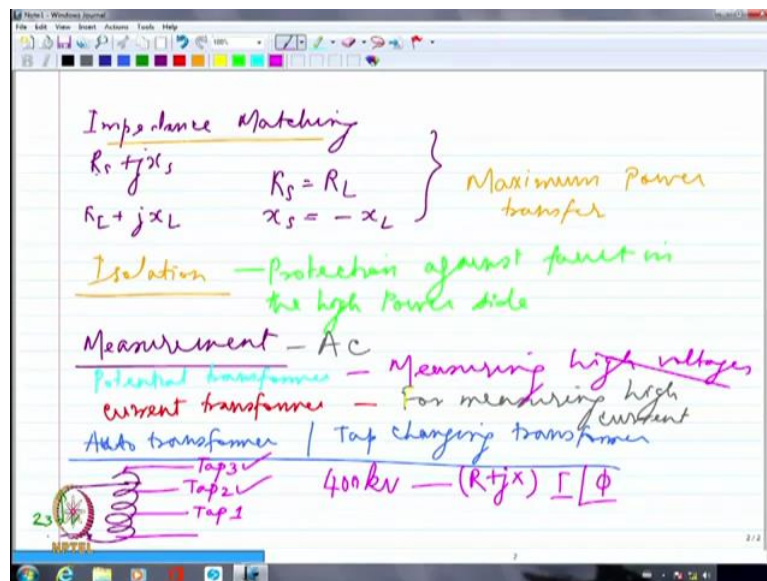 Note1 - Windows Journal
File Edit View Insert Actions Tools Help
100%
B I
Impedance Matching
Rs + jxs
Rs = RL
RL + jxL
xs = - xL
Maximum Power
transfer
Isolation — Protection against fault in
the high Power side
Measurement — AC
Potential transformer — Measuring high voltages
current transformer — For measuring high
current
Auto transformer | Tap changing transformer
Tap3 ✓
Tap2 ✓
Tap 1
400kV — (R+jx) I∠ϕ
NPTEL
2/2